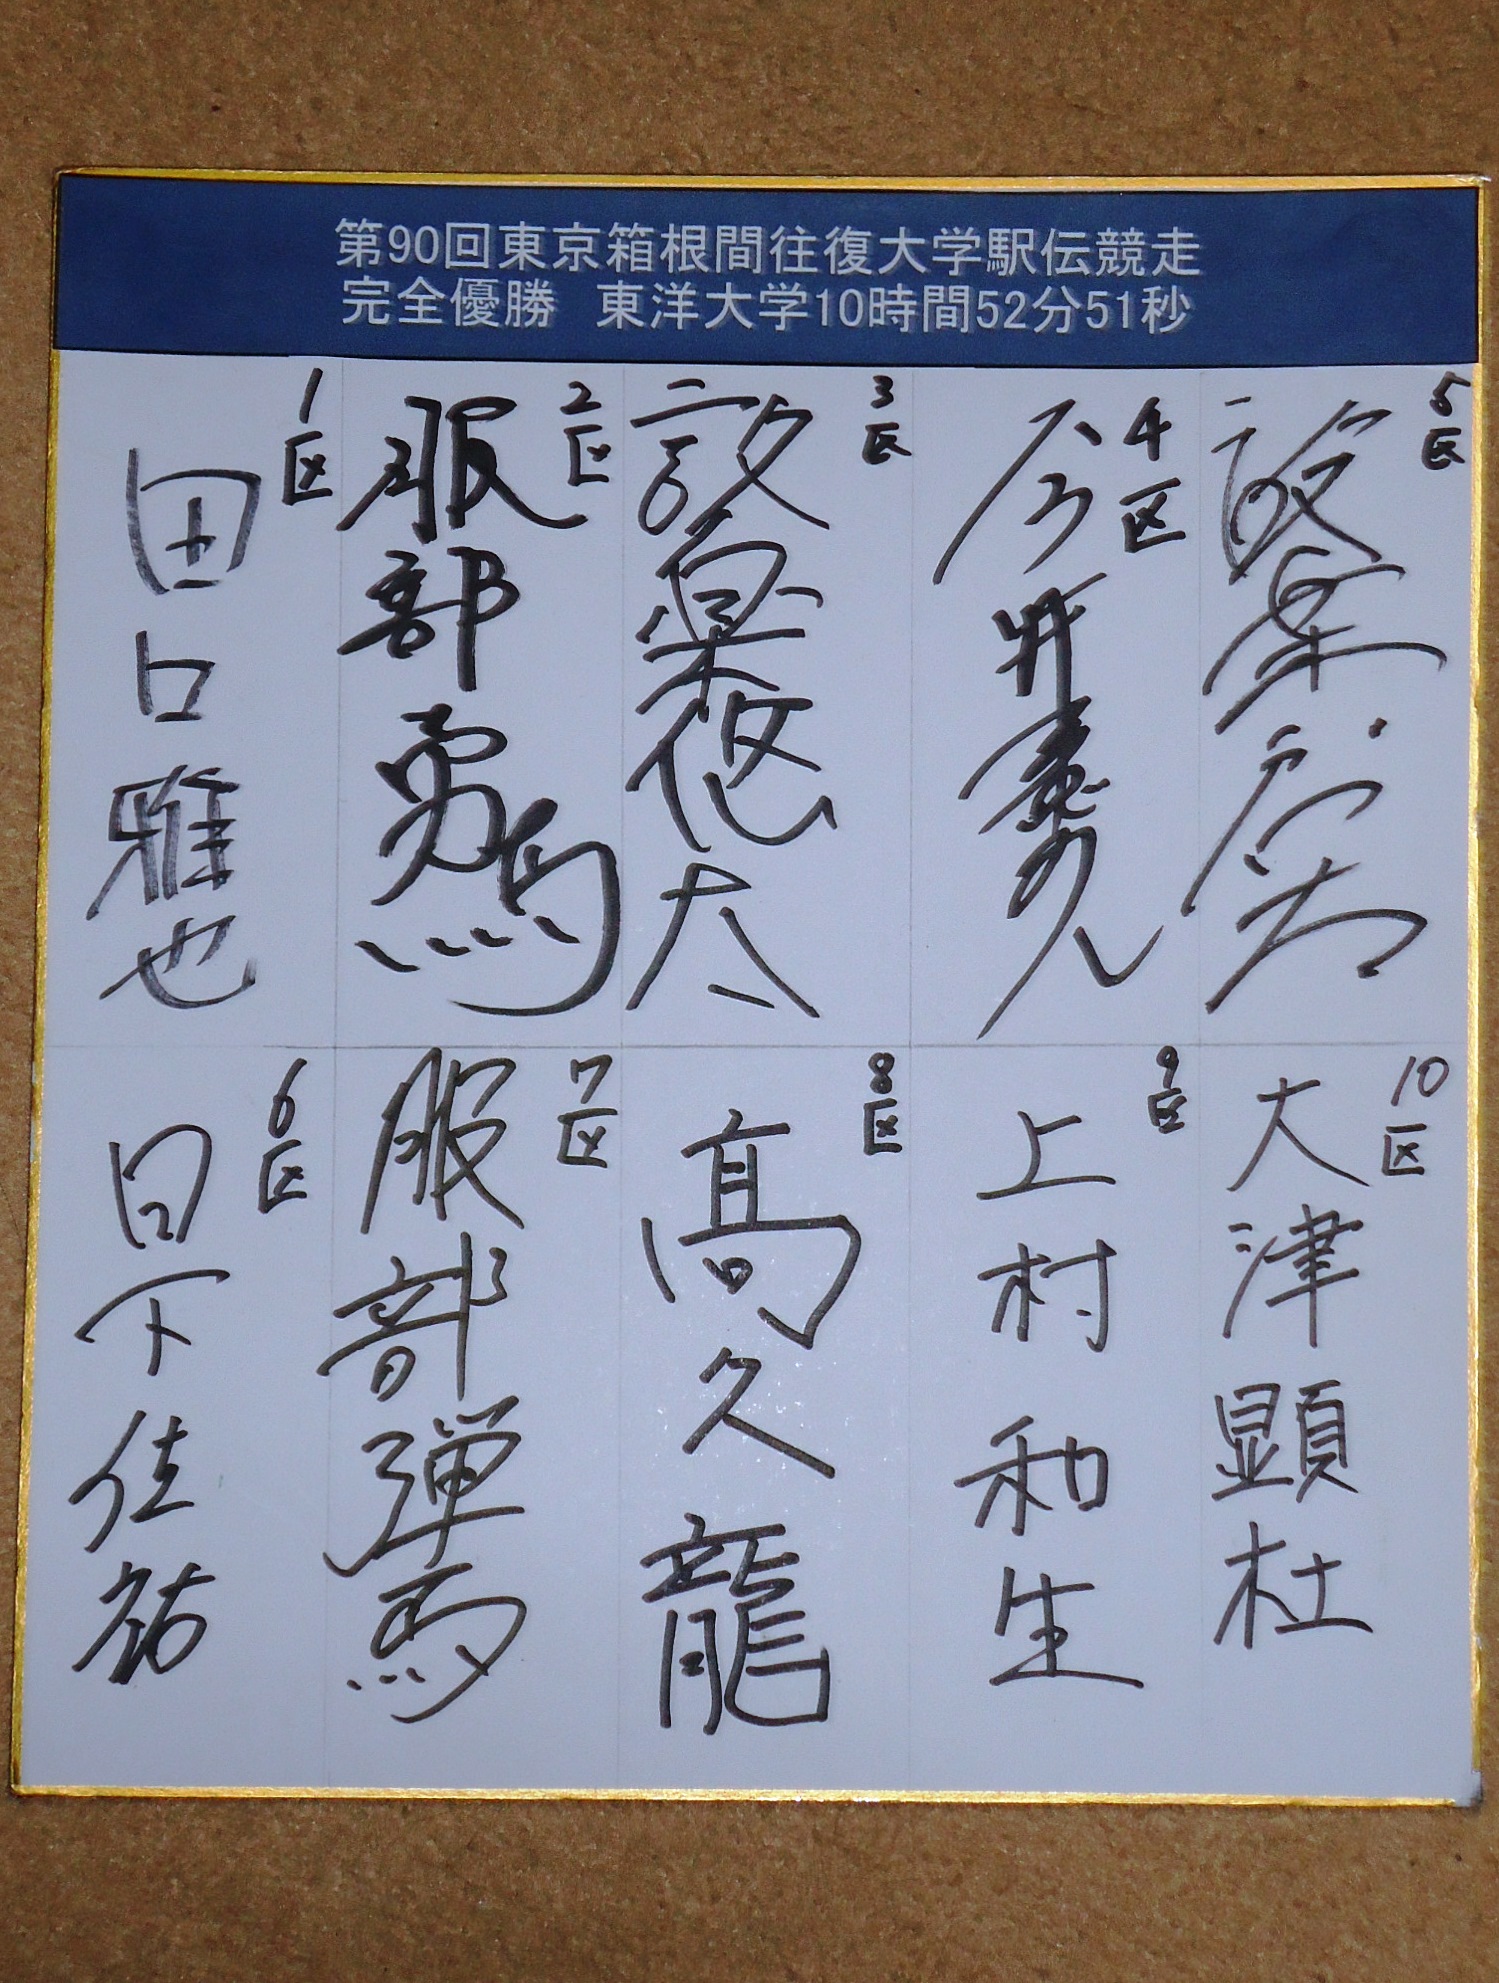 第90回東京箱根間往復大学駅伝競走
完全優勝　東洋大学10時間52分51秒
1区
田口雅也
2区
服部勇馬
3区
設楽悠太
4区
今井憲久
5区
設楽啓太
6区
日下佳祐
7区
服部弾馬
8区
髙久龍
9区
上村和生
10区
大津顕杜